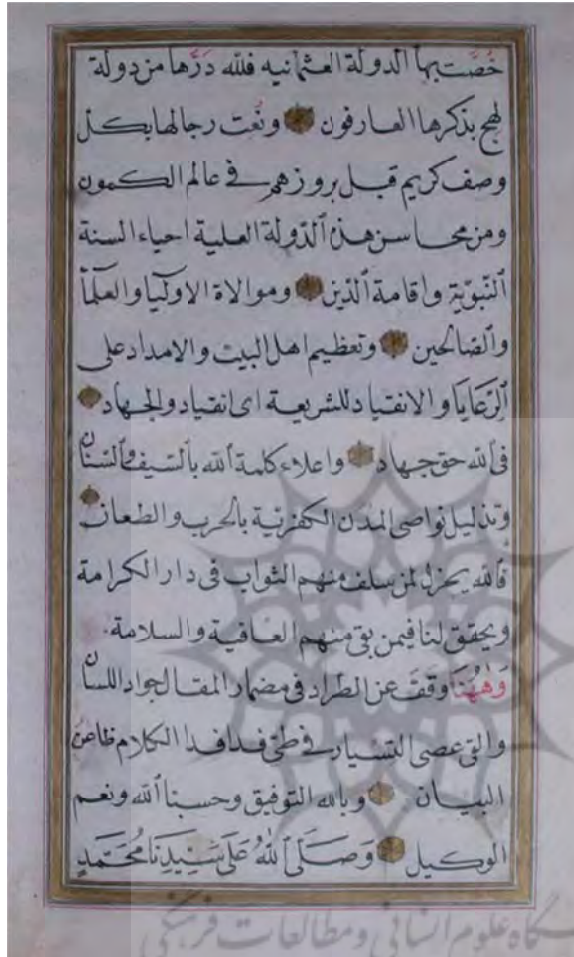 خُصَّت بها الدولة العثمانيه فلله دَرُّها من دولة
لهج بذكرها العارفون ونُعت رجالها بكل
وصف كريم قبل بروزهم في عالم الكمون
ومن محاسن هذه الدولة العلية احياء السنة
النبوية واقامة الدين وموالاة الاوليا والعلما
والصالحين وتعظيم اهل البيت والامداد على
الرعايا والانقياد للشريعة اى انقياد والجهاد
فى الله حق جهاد واعلاء كلمة الله بالسيف والسنان
وتذليل نواصى المدن الكفرية بالحرب والطعان
فالله يجزل لمن سلف منهم الثواب فى دار الكرامة
ويحقق لنا فيمن بقى منهم العافية والسلامة
وَههُنا وقفَ عن الطراد فى مضمار المقال جواد اللسان
والقى عصى التسيار فى طى فدافد الكلام ظاعن
البيان وبالله التوفيق وحسبنا الله ونعم
الوكيل وَصَلَّى اللهُ عَلَى سَيِّدِنَا مُحَمَّدٍ
گاه علوم انسانی و مطالعات فرهنگی